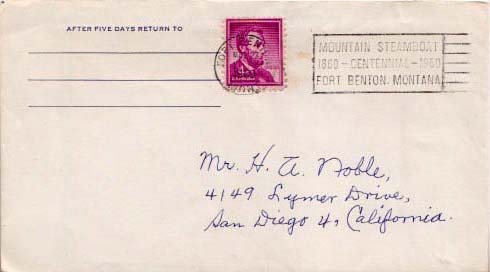 AFTER FIVE DAYS RETURN TO
MOUNTAIN STEAMBOAT
1860 - CENTENNIAL - 1960
FORT BENTON, MONTANA
Mr. H. A. Noble,
4149 Lymer Drive,
San Diego 4, California.